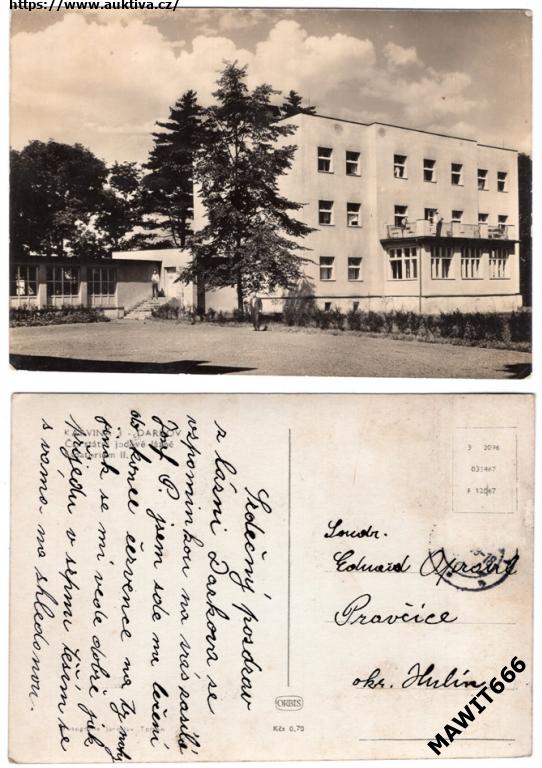 https://www.auktiva.cz/
KARVINÁ 3 - DARKOV
Čs. státní jodové lázně
Sanatorium II.
Srdečný pozdrav
z lázní Darkova se
vzpomínkou na vás zasílá
Jos. P. jsem zde na léčení
do konce července na ty nohy
jinak se mi vede dobře jak
přijedu v srpnu těším se
s vama na shledanou.
3 2096
031467
F 12067
Soudr.
Eduard
Pravčice
okr. Hulín
ORBIS
Kčs 0,70
MAWIT666